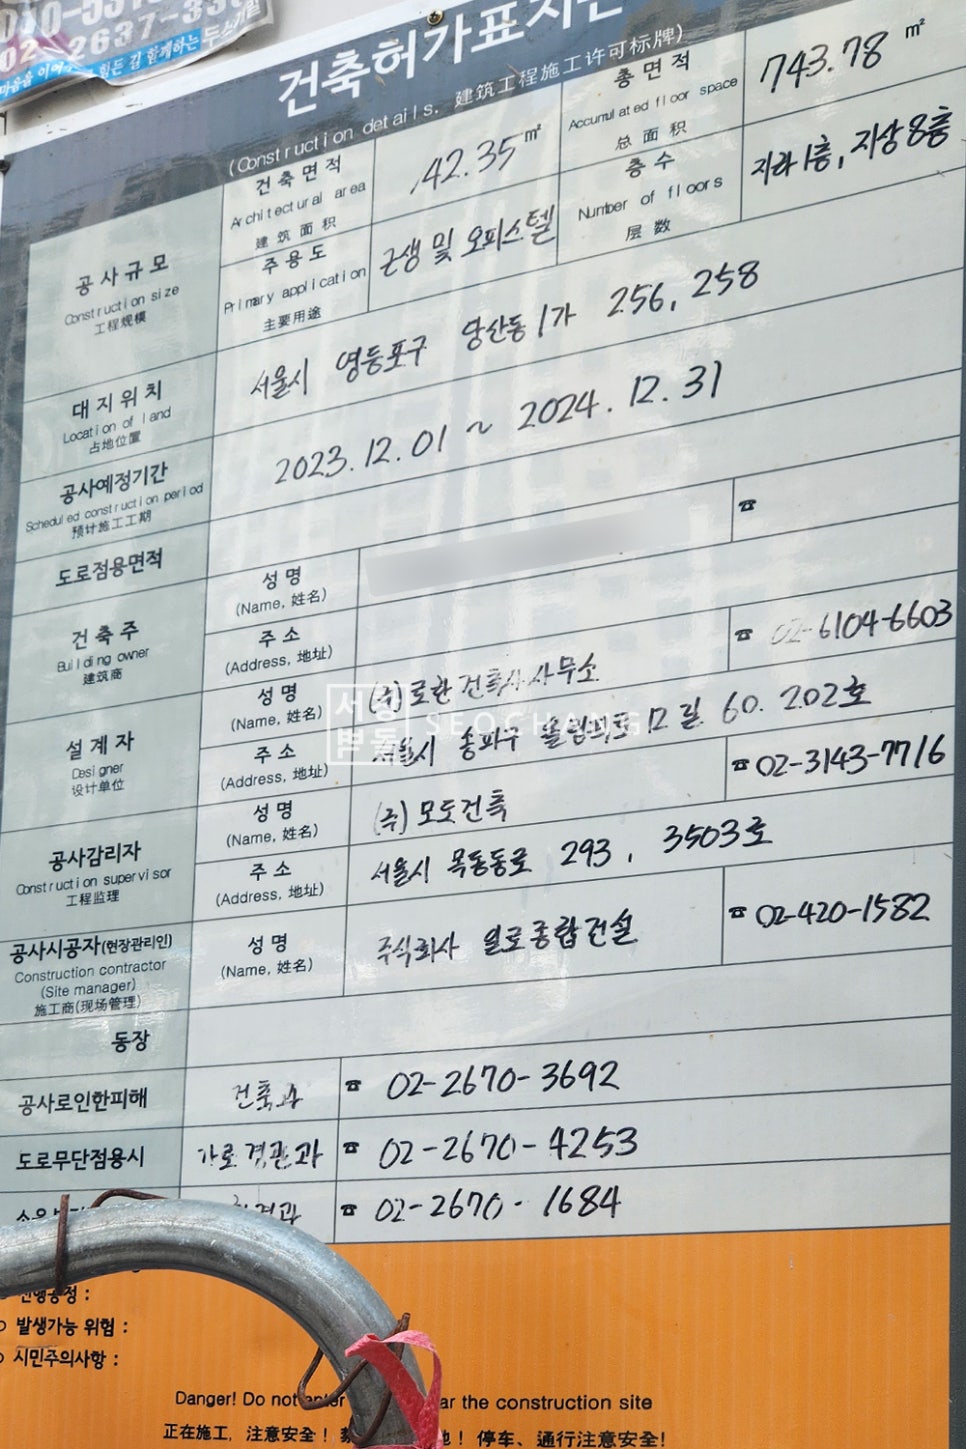 마음을 이어
힘든 길 함께하는
건축허가표지판
(Construction details, 建筑工程施工许可标牌)
공사규모
Construction size
工程规模
건축면적
Architectural area
建筑面积
142.35 ㎡
총면적
Accumulated floor space
总面积
743.78 ㎡
주용도
Primary application
主要用途
근생 및 오피스텔
층수
Number of floors
层数
지하1층, 지상8층
대지위치
Location of land
占地位置
서울시 영등포구 당산동1가 256, 258
공사예정기간
Scheduled construction period
预计施工工期
2023.12.01 ~ 2024.12.31
도로점용면적
건축주
Building owner
建筑商
성명
(Name, 姓名)
☎
주소
(Address, 地址)
설계자
Designer
设计单位
성명
(Name, 姓名)
(주)로한건축사사무소
☎ 02-6104-6603
주소
(Address, 地址)
서울시 송파구 올림픽로12길 60. 202호
서창번돌
SEOCHANG
공사감리자
Construction supervisor
工程监理
성명
(Name, 姓名)
(주)모도건축
☎ 02-3143-7716
주소
(Address, 地址)
서울시 목동동로 293, 3503호
공사시공자(현장관리인)
Construction contractor
(Site manager)
施工商(现场管理)
성명
(Name, 姓名)
주식회사 월로종합건설
☎ 02-420-1582
동장
공사로인한피해
건축과
☎ 02-2670-3692
도로무단점용시
가로경관과
☎ 02-2670-4253
환경과
☎ 02-2670-1684
진행공정 :
발생가능 위험 :
시민주의사항 :
Danger! Do not enter ar the construction site
正在施工, 注意安全! 地! 停车、通行注意安全!